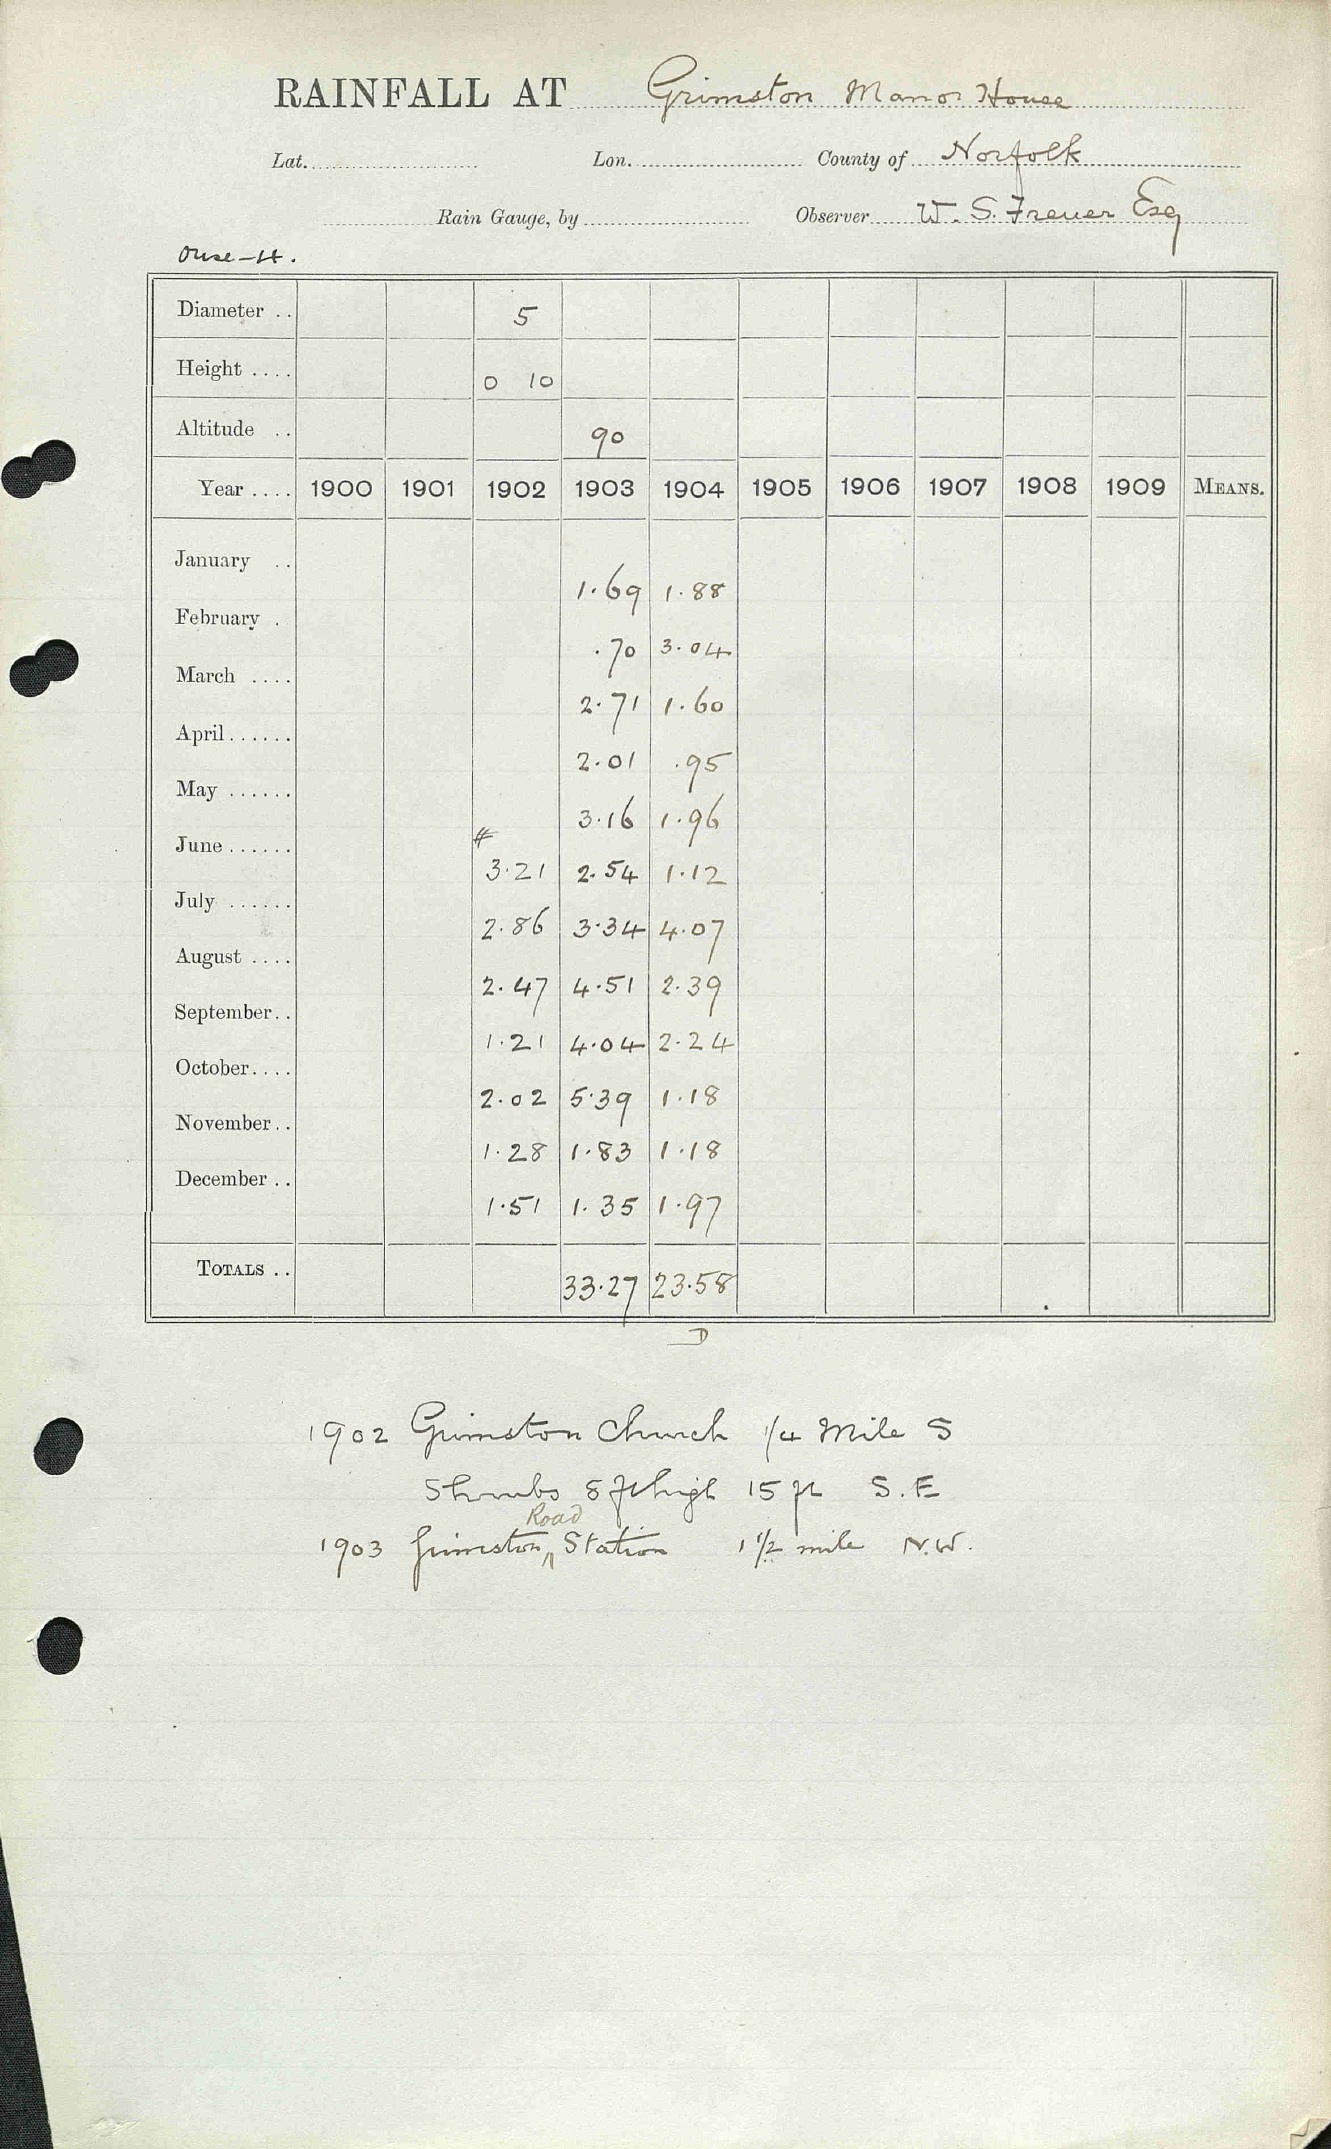 RAINFALL AT Grimston Manor House
Lat. Lon. County of Norfolk
Rain Gauge, by Observer W. S. Frener Esq
Ouse - H.
Diameter .. 5
Height .... 0 10
Altitude .. 90
Year .... 1900 1901 1902 1903 1904 1905 1906 1907 1908 1909 MEANS.
January .. 1.69 1.88
February . .70 3.04
March .... 2.71 1.60
April ...... 2.01 .95
May ...... 3.16 1.96
June ...... # 3.21 2.54 1.12
July ...... 2.86 3.34 4.07
August .... 2.47 4.51 2.39
September .. 1.21 4.04 2.24
October .... 2.02 5.39 1.18
November .. 1.28 1.83 1.18
December .. 1.51 1.35 1.97
TOTALS .. 33.27 23.58
D
1902 Grimston Church 1/4 Mile S
Shrubs 8 ft high 15 ft S.E
1903 Grimston Road Station 1 1/2 mile N.W.